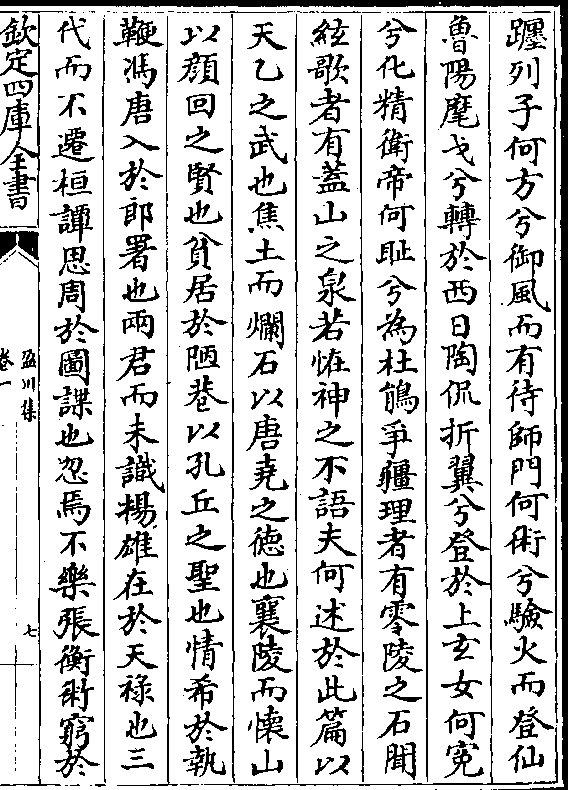 躔列子何方兮御風而有待師門何術兮驗火而登仙
魯陽麾戈兮轉於西日陶侃折翼兮登於上玄女何寃
兮化精衛帝何耻兮為杜鵑爭疆理者有零陵之石聞
絃歌者有蓋山之泉若恠神之不語夫何述於此篇以
天乙之武也焦土而爛石以唐堯之徳也襄陵而懐山
以顔回之賢也貧居於陋巷以孔丘之聖也情希於執
鞭馮唐入於郎署也兩君而未識楊雄在於天祿也三
代而不遷桓譚思周於圖諜也忽焉不樂張衡術窮於
欽定四庫全書
盈川集
卷一
七